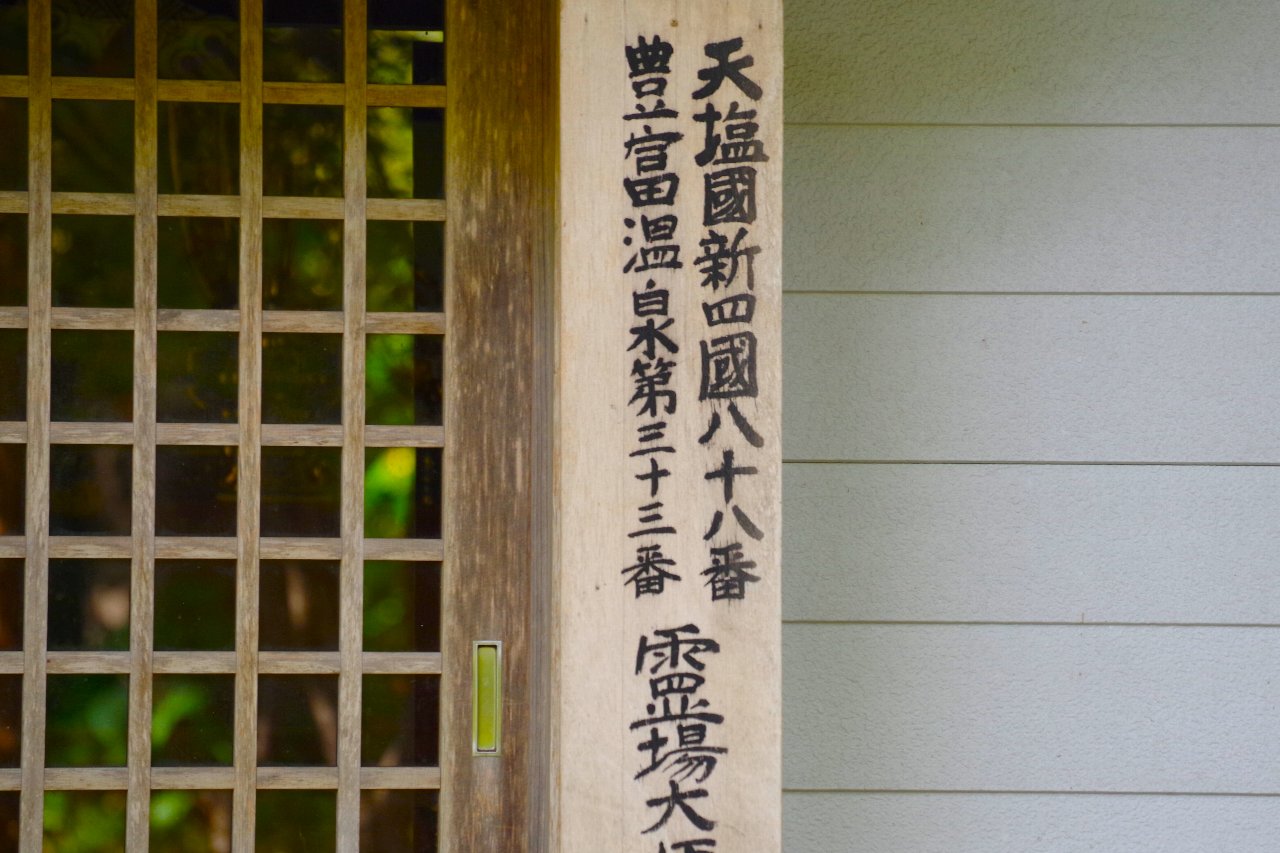 天塩國新四國八十八番
豊富田温泉第三十三番
霊場大